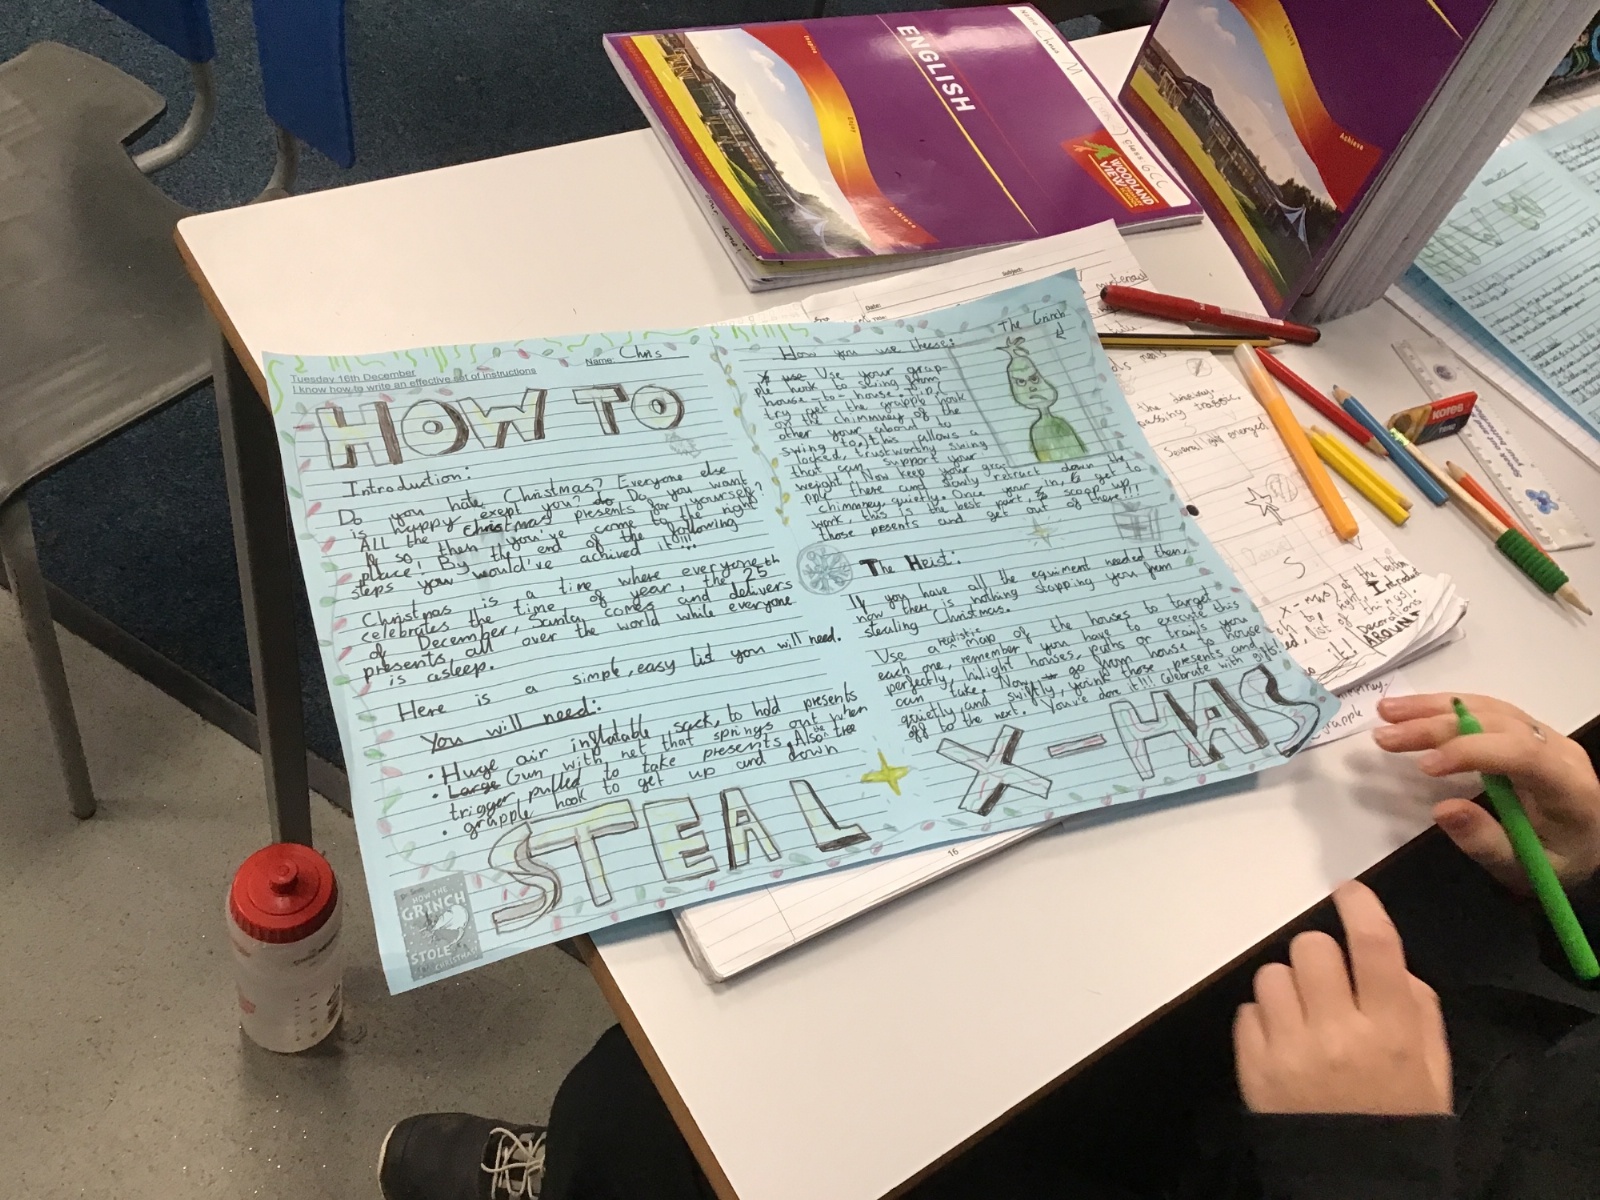 Tuesday 16th December
I know how to write an effective set of instructions
Name: Chris
HOW TO
Introduction:
Do you hate Christmas? Everyone else
is happy exept you? do Do you want
ALL the Christmas presents for yourself?
If so, then you've come to the right
place! By the end of the following
steps you would've achived it!!!
Christmas is a time where everyone
celebrates the time of year, the 25th
of December, Santa comes and delivers
presents all over the world while everyone
is asleep.
Here is a simple, easy list you will need.
You will need:
• Huge air inflatable sack, to hold presents
• Large Gun with net that springs out when
trigger pulled to take presents. Also tree
• grapple hook to get up and down
STEAL
HOW THE
GRINCH
STOLE
CHRISTMAS
How you use these:
Use your grap-
ple hook to swing from
house-to-house. Tip:
try get the grapple hook
on the chimney of the
other your about to
swing to, this allows a
locked, trustworthy swing
that can support your
weight. Now keep your gra-
pple there and slowly retract down the
chimney, quietly. Once your in, get to
work, this is the best part, scoop up
those presents and get out of there!!!
The Grinch
The Heist:
If you have all the equiment needed then,
now there is nothing stopping you from
stealing Christmas.
Use a realistic map of the houses to target
each one, remember you have to execute this
perfectly, hilight houses, paths or trails you
can take. Now go from house to house
quietly and swiftly, yoink those presents and
off to the next. You've done it!!! Celebrate with gifts!
X-MAS
ENGLISH
Name: Chris M
Class 6CC
WOODLAND
VIEW
Inspire
Enjoy
Achieve
Enjoy
Achieve
Subject:
Date:
passing traffic.
kores
16